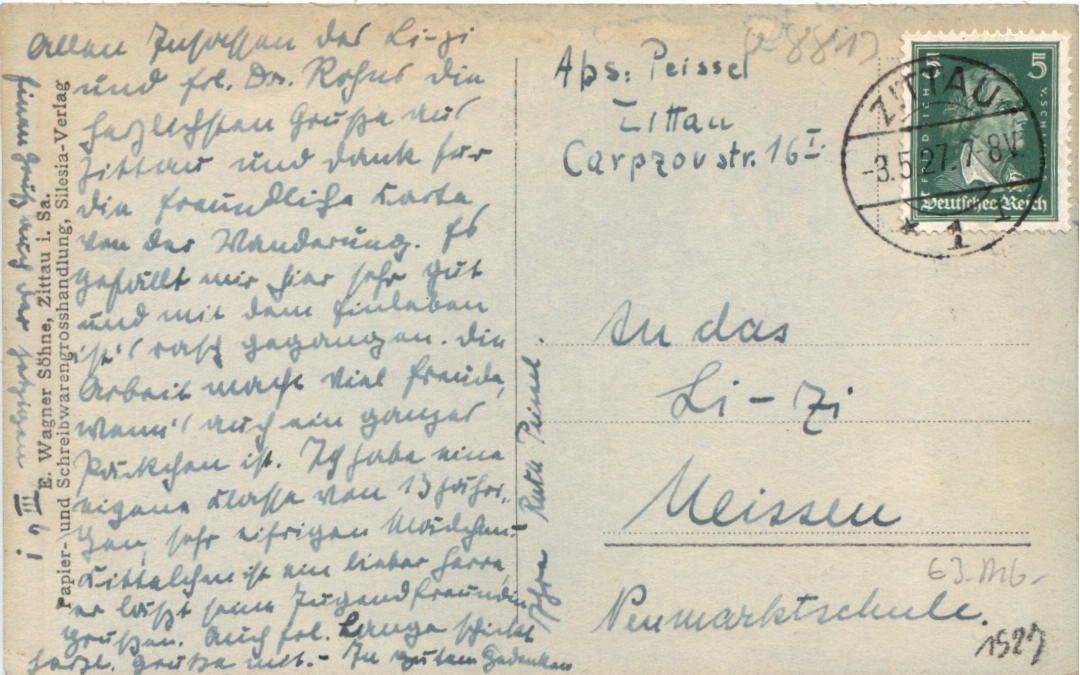 Allen Insassen des Li-Zi
und Frl. Dr. Rohns die
herzlichsten Grüße aus
Zittau und Dank für
die freundliche Karte
von der Wanderung. Es
gefällt mir hier sehr gut
und mit dem Einleben
ist's rasch gegangen. Die
Arbeit macht viel Freude,
wenn's auch ein ganzes
Päckchen ist. Ich habe eine
eigene Klasse von 13 jähri-
gen, sehr eifrigen Mädchen.
ist ein lieber Herr,
er läßt seine Jugendfreundin
grüßen. Auch Frl. Lange schickt
herzl. Grüße mit. - In gutem Gedenken
Ihre Ruth Peissel.
Einen Gruß auch der jetzigen III b !
E. Wagner Söhne, Zittau i. Sa.
Papier- und Schreibwarengrosshandlung, Silesia-Verlag
Abs: Peissel
Zittau
Carpzovstr. 16 I
5 5
Deutsches Reich
ZITTAU
-3.5.27. 7-8V.
* 1
An das
Li-Zi
Meissen
Neumarktschule.
63. Mb-
1927